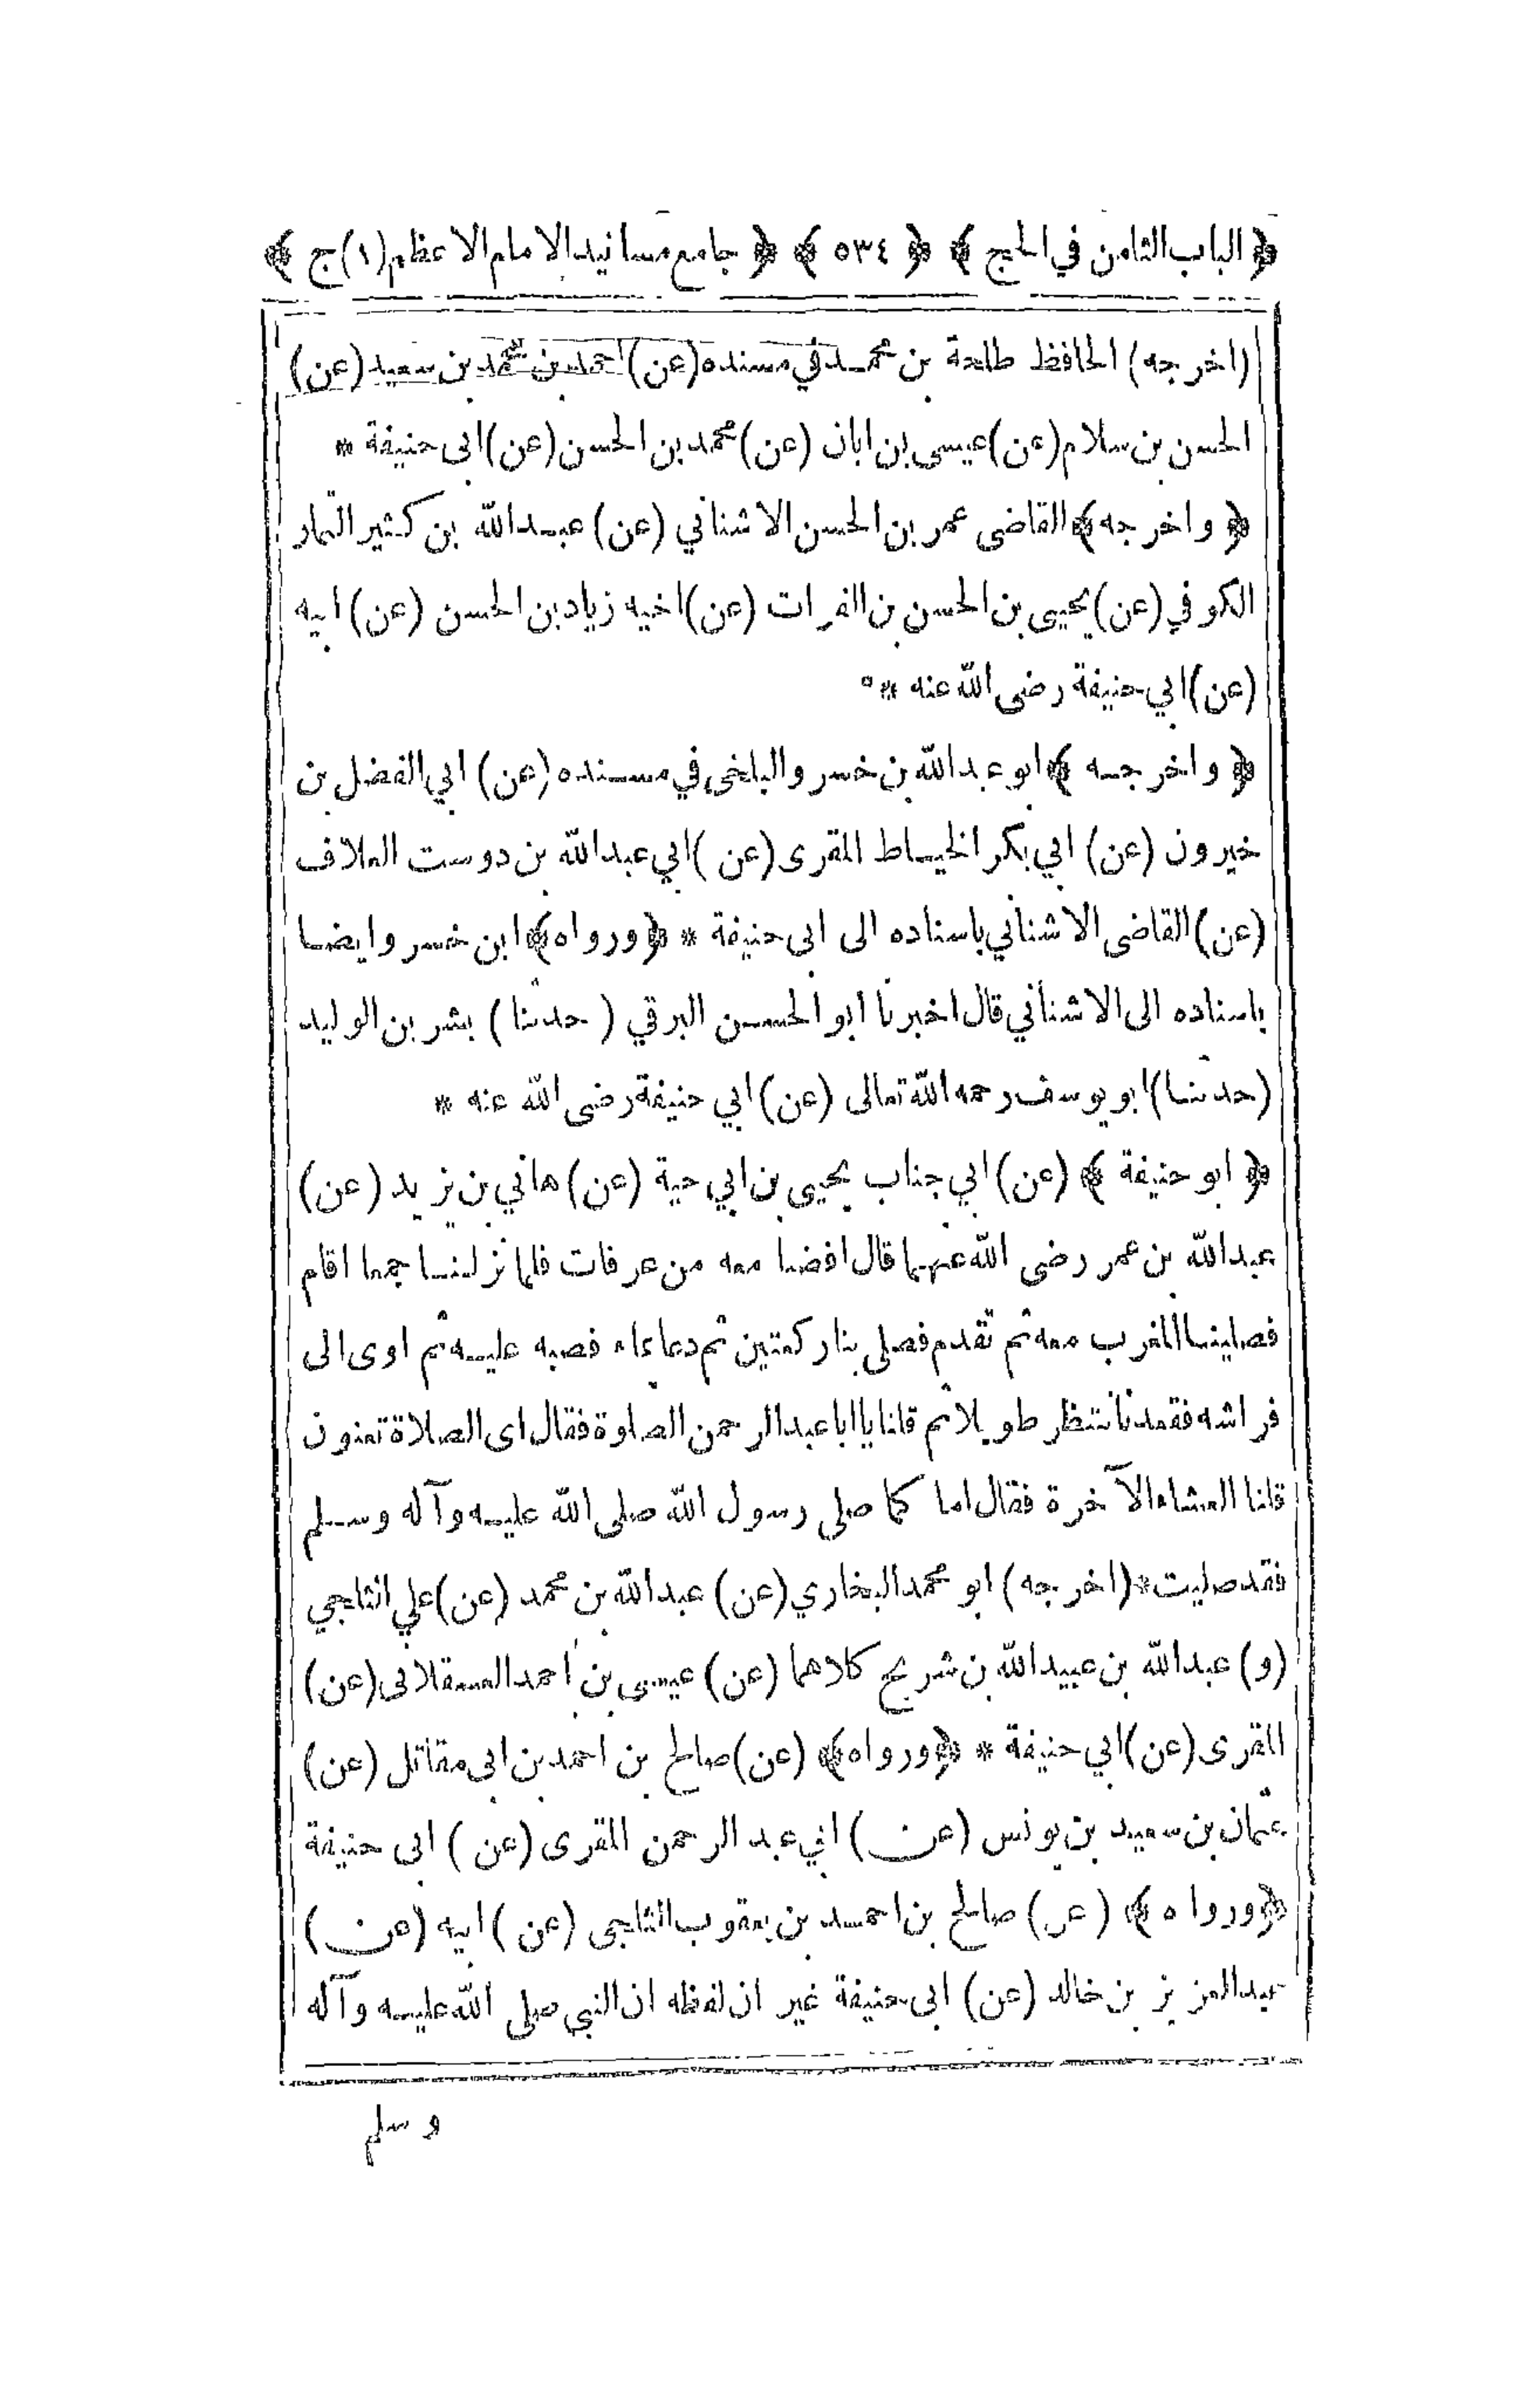 ﴿ الباب الثامن في الحج ﴾ ﴿ ٥٣٤ ﴾ ﴿ جامع مسانيد الامام الاعظم (١) ج ﴾
(اخرجه) الحافظ طلحة بن محمد في مسنده (عن) احمد بن محمد بن سعيد (عن)
الحسن بن سلام (عن) عيسى بن ابان (عن) محمد بن الحسن (عن) ابى حنيفة *
﴿ واخرجه ﴾ القاضى عمر بن الحسن الاشناني (عن) عبد الله بن كثير التمار
الكوفي (عن) يحيى بن الحسن بن الفرات (عن) اخيه زياد بن الحسن (عن) ابيه
(عن) ابي حنيفة رضى الله عنه *
﴿ واخرجه ﴾ ابو عبد الله بن خسرو البلخى في مسنده (عن) ابي الفضل بن
خيرون (عن) ابي بكر الخياط المقرى (عن) ابي عبد الله بن دوست العلاف
(عن) القاضى الاشناني باسناده الى ابى حنيفة * ﴿ ورواه ﴾ ابن خسرو ايضا
باسناده الى الاشناني قال اخبرنا ابو الحسن البرقي (حدثنا) بشر بن الوليد
(حدثنا) ابو يوسف رحمه الله تعالى (عن) ابي حنيفة رضى الله عنه *
﴿ ابو حنيفة ﴾ (عن) ابي جناب يحيى بن ابي حية (عن) هاني بن يزيد (عن)
عبد الله بن عمر رضى الله عنهما قال افضنا معه من عرفات فلما نزلنا جمعا اقام
فصلينا المغرب معه ثم تقدم فصلى بنا ركعتين ثم دعا بماء فصبه عليه ثم اوى الى
فراشه فقعدنا ننتظر طويلا ثم قلنا يا ابا عبد الرحمن الصلوة فقال اى الصلاة تعنون
قلنا العشاء الآخرة فقال اما كما صلى رسول الله صلى الله عليه وآله وسلم
فقد صليت * (اخرجه) ابو محمد البخاري (عن) عبد الله بن محمد (عن) علي الثلجي
(و) عبد الله بن عبيد الله بن شريح كلاهما (عن) عيسى بن احمد العسقلانى (عن)
المقرى (عن) ابي حنيفة * ﴿ ورواه ﴾ (عن) صالح بن احمد بن ابى مقاتل (عن)
عثمان بن سعيد بن يونس (عن) ابي عبد الرحمن المقرى (عن) ابى حنيفة
﴿ ورواه ﴾ (عن) صالح بن احمد بن يعقوب الثلجى (عن) ابيه (عن)
عبد العزيز بن خالد (عن) ابى حنيفة غير ان لفظه ان النبي صلى الله عليه وآله
وسلم